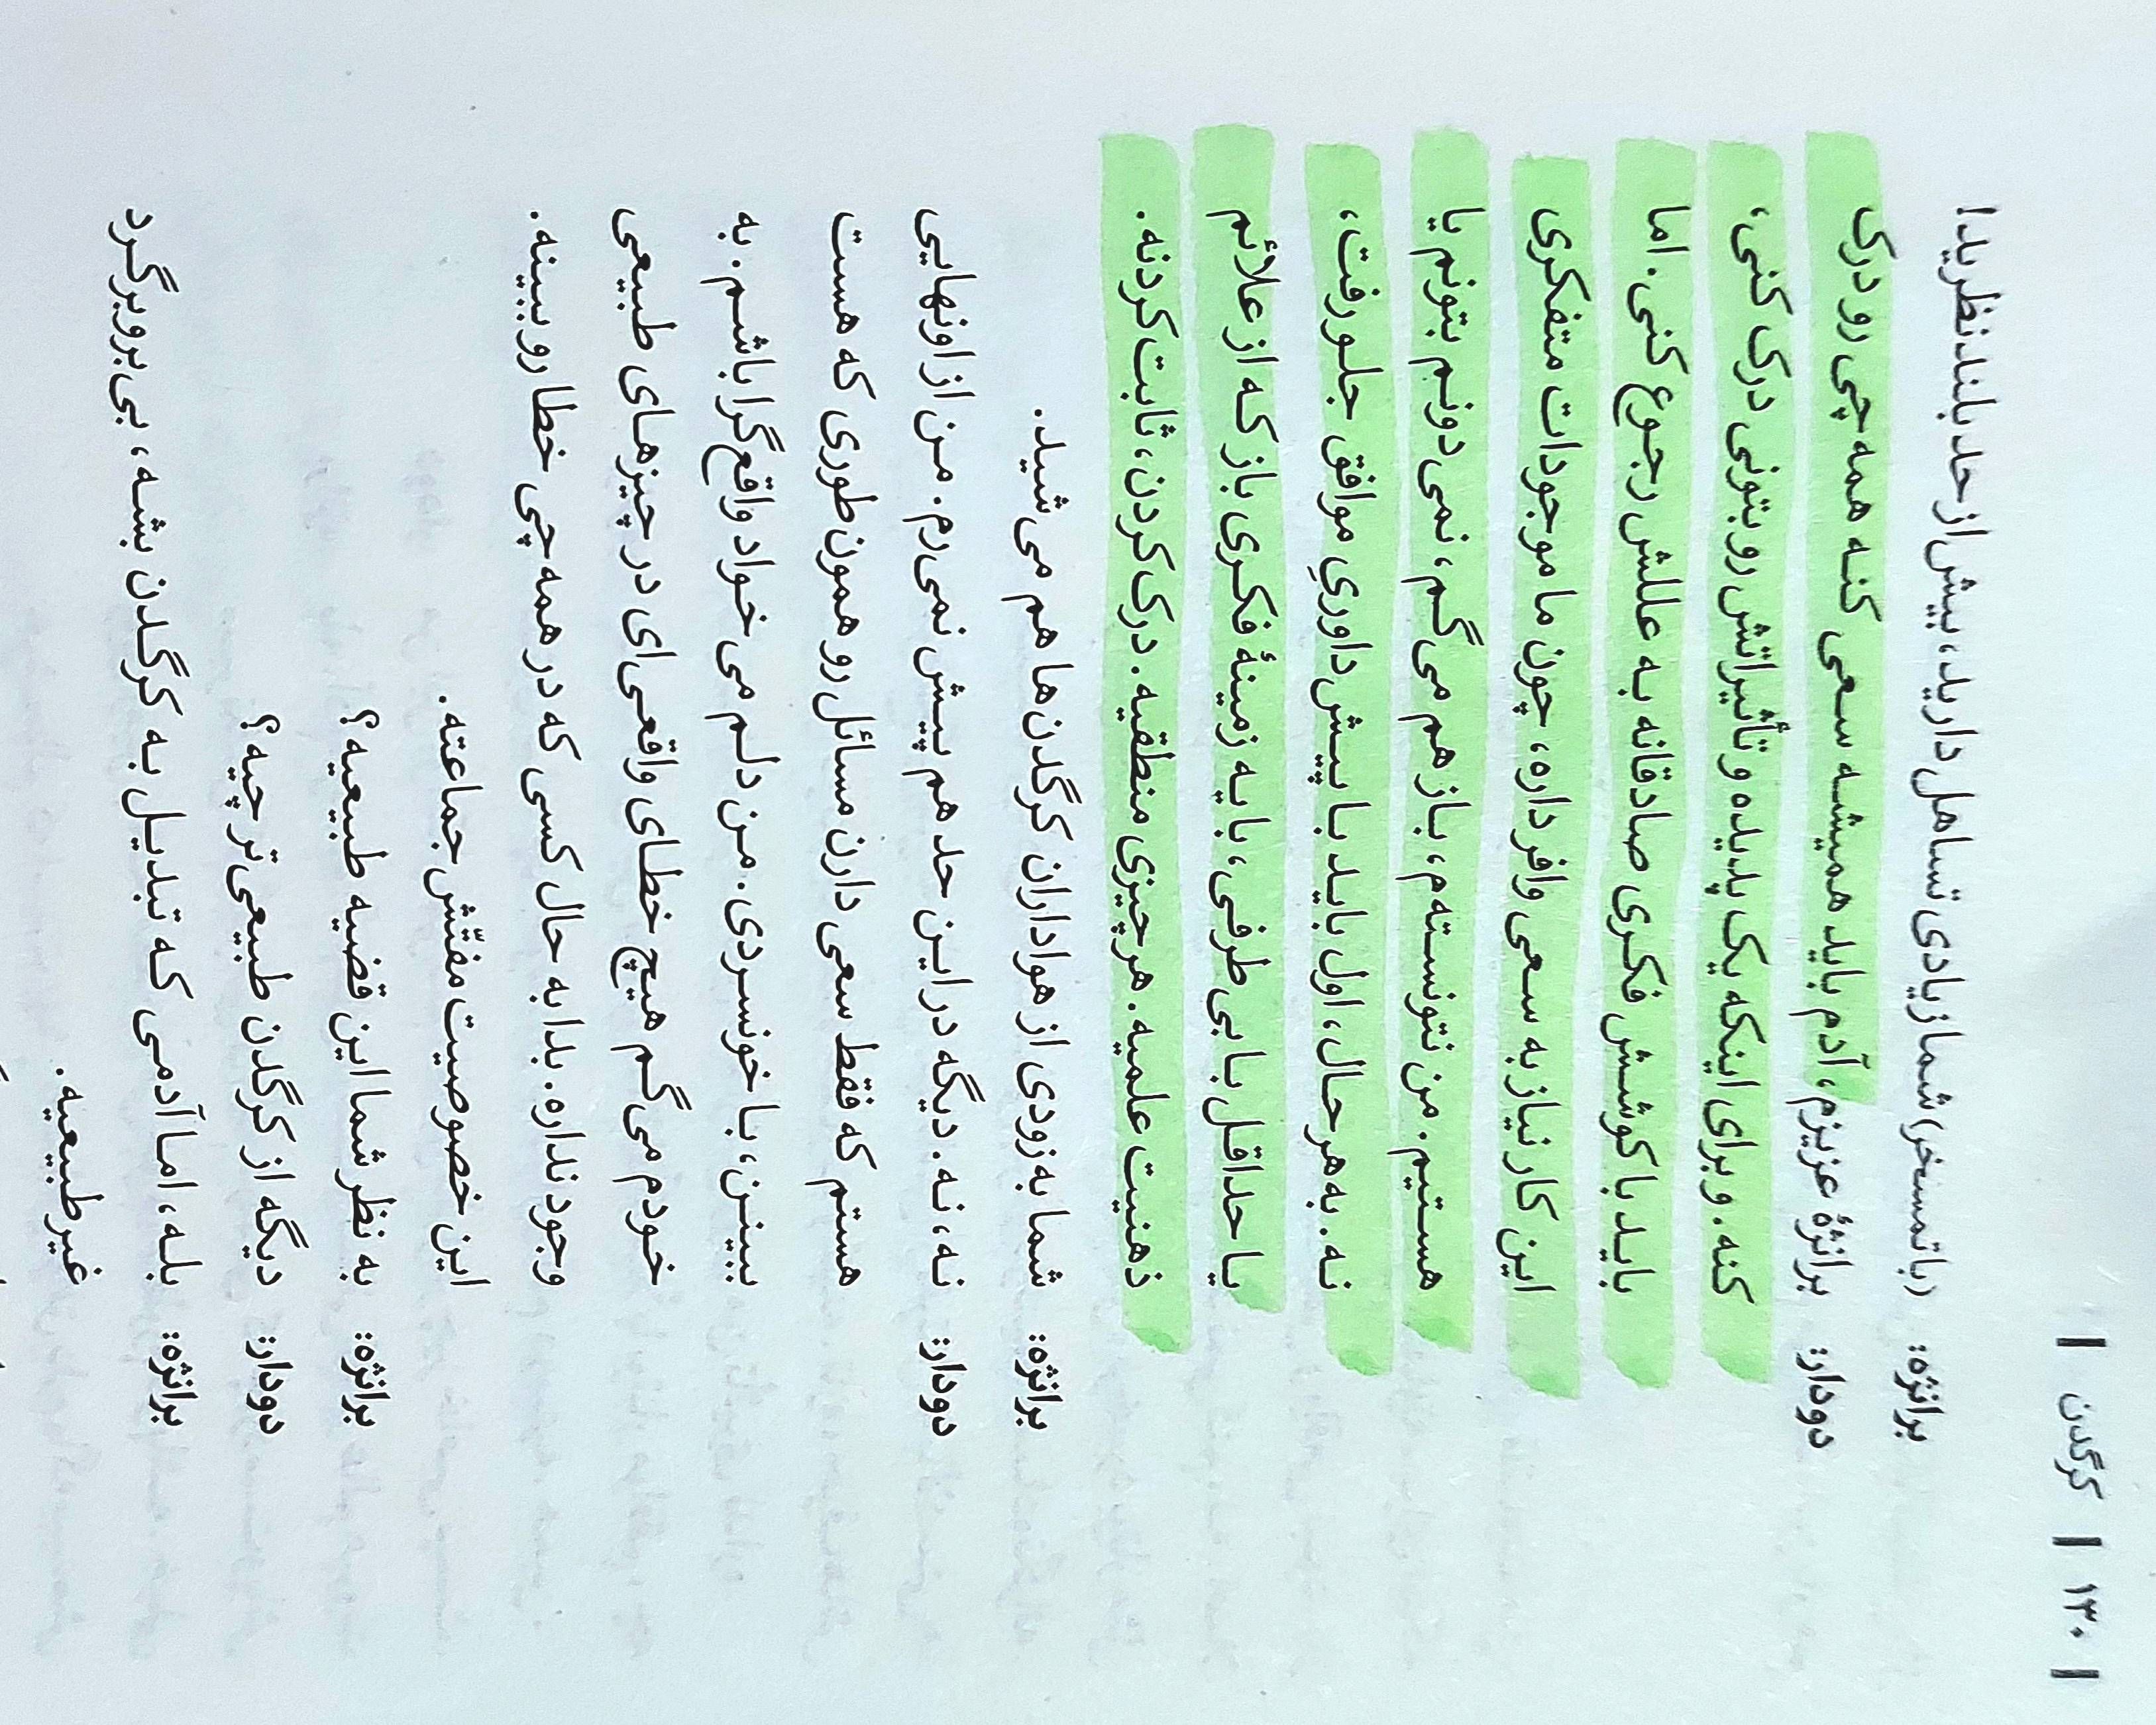 | ۱۳۰ | کرگدن |
برانژه: (با تمسخر) شما زیادی تساهل دارید، بیش از حد بلندنظرید!
دودار: برانژهٔ عزیزم، آدم باید همیشه سعی کنه همه‌چی رو درک
کنه. و برای اینکه یک پدیده و تأثیراتش رو بتونی درک کنی،
باید با کوشش فکری صادقانه به عللش رجوع کنی. اما
این کار نیاز به سعی وافر داره، چون ما موجودات متفکری
هستیم. من نتونسته‌م، باز هم می‌گم، نمی‌دونم بتونم یا
نه. به‌هرحال، اول باید با پیش‌داوریِ موافق جلو رفت،
یا حداقل با بی‌طرفی، با یه زمینهٔ فکری باز که از علائم
ذهنیت علمیه. هرچیزی منطقیه. درک کردن، ثابت کردنه.
برانژه: شما به‌زودی از هواداران کرگدن‌ها هم می‌شید.
دودار: نه، نه. دیگه در این حد هم پیش نمی‌رم. من از اونهایی
هستم که فقط سعی دارن مسائل رو همون‌طوری که هست
ببینن، با خونسردی. من دلم می‌خواد واقع‌گرا باشم. به
خودم می‌گم هیچ خطای واقعی‌ای در چیزهای طبیعی
وجود نداره. بدا به حال کسی که در همه‌چی خطا رو ببینه.
این خصوصیت مفتّش جماعته.
برانژه: به نظر شما این قضیه طبیعیه؟
دودار: دیگه از کرگدن طبیعی‌تر چیه؟
برانژه: بله، اما آدمی که تبدیل به کرگدن بشه، بی‌بروبرگرد
غیرطبیعیه.